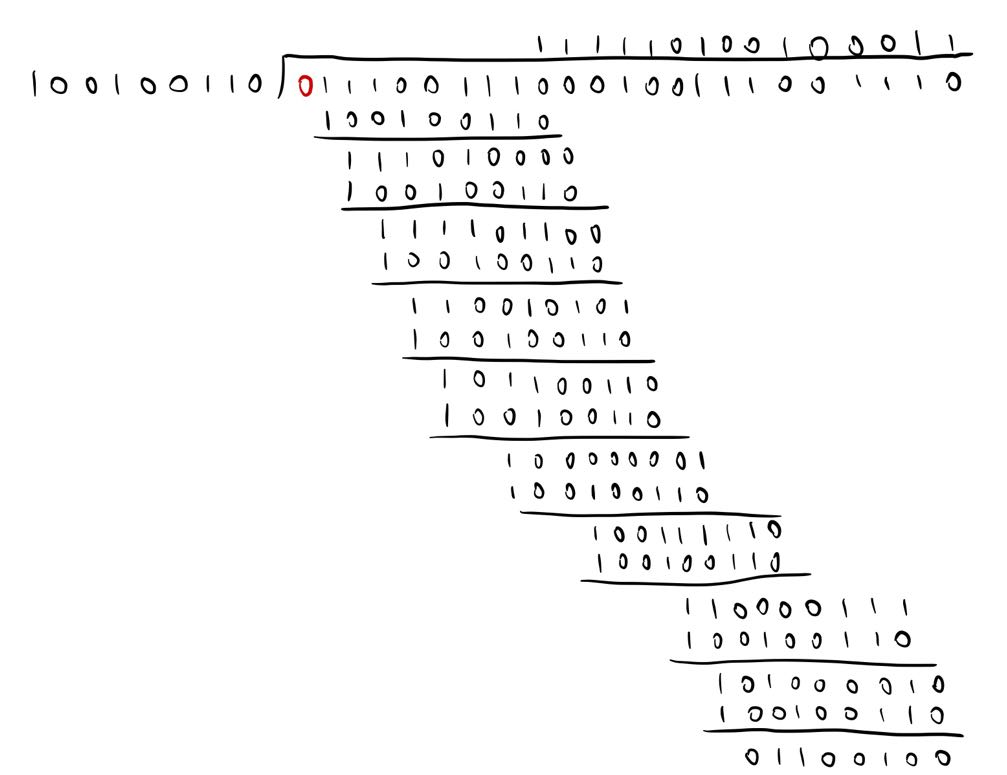 1 1 1 1 1 0 1 0 0 1 0 0 0 1 1
1 0 0 1 0 0 1 1 0 ) 0 1 1 1 0 0 1 1 1 0 0 0 1 0 0 1 1 1 0 0 1 1 1 0
1 0 0 1 0 0 1 1 0
1 1 1 0 1 0 0 0 0
1 0 0 1 0 0 1 1 0
1 1 1 1 0 1 1 0 0
1 0 0 1 0 0 1 1 0
1 1 0 0 1 0 1 0 1
1 0 0 1 0 0 1 1 0
1 0 1 1 0 0 1 1 0
1 0 0 1 0 0 1 1 0
1 0 0 0 0 0 0 0 1
1 0 0 1 0 0 1 1 0
1 0 0 1 1 1 1 1 0
1 0 0 1 0 0 1 1 0
1 1 0 0 0 0 1 1 1
1 0 0 1 0 0 1 1 0
1 0 1 0 0 0 0 1 0
1 0 0 1 0 0 1 1 0
0 1 1 0 0 1 0 0